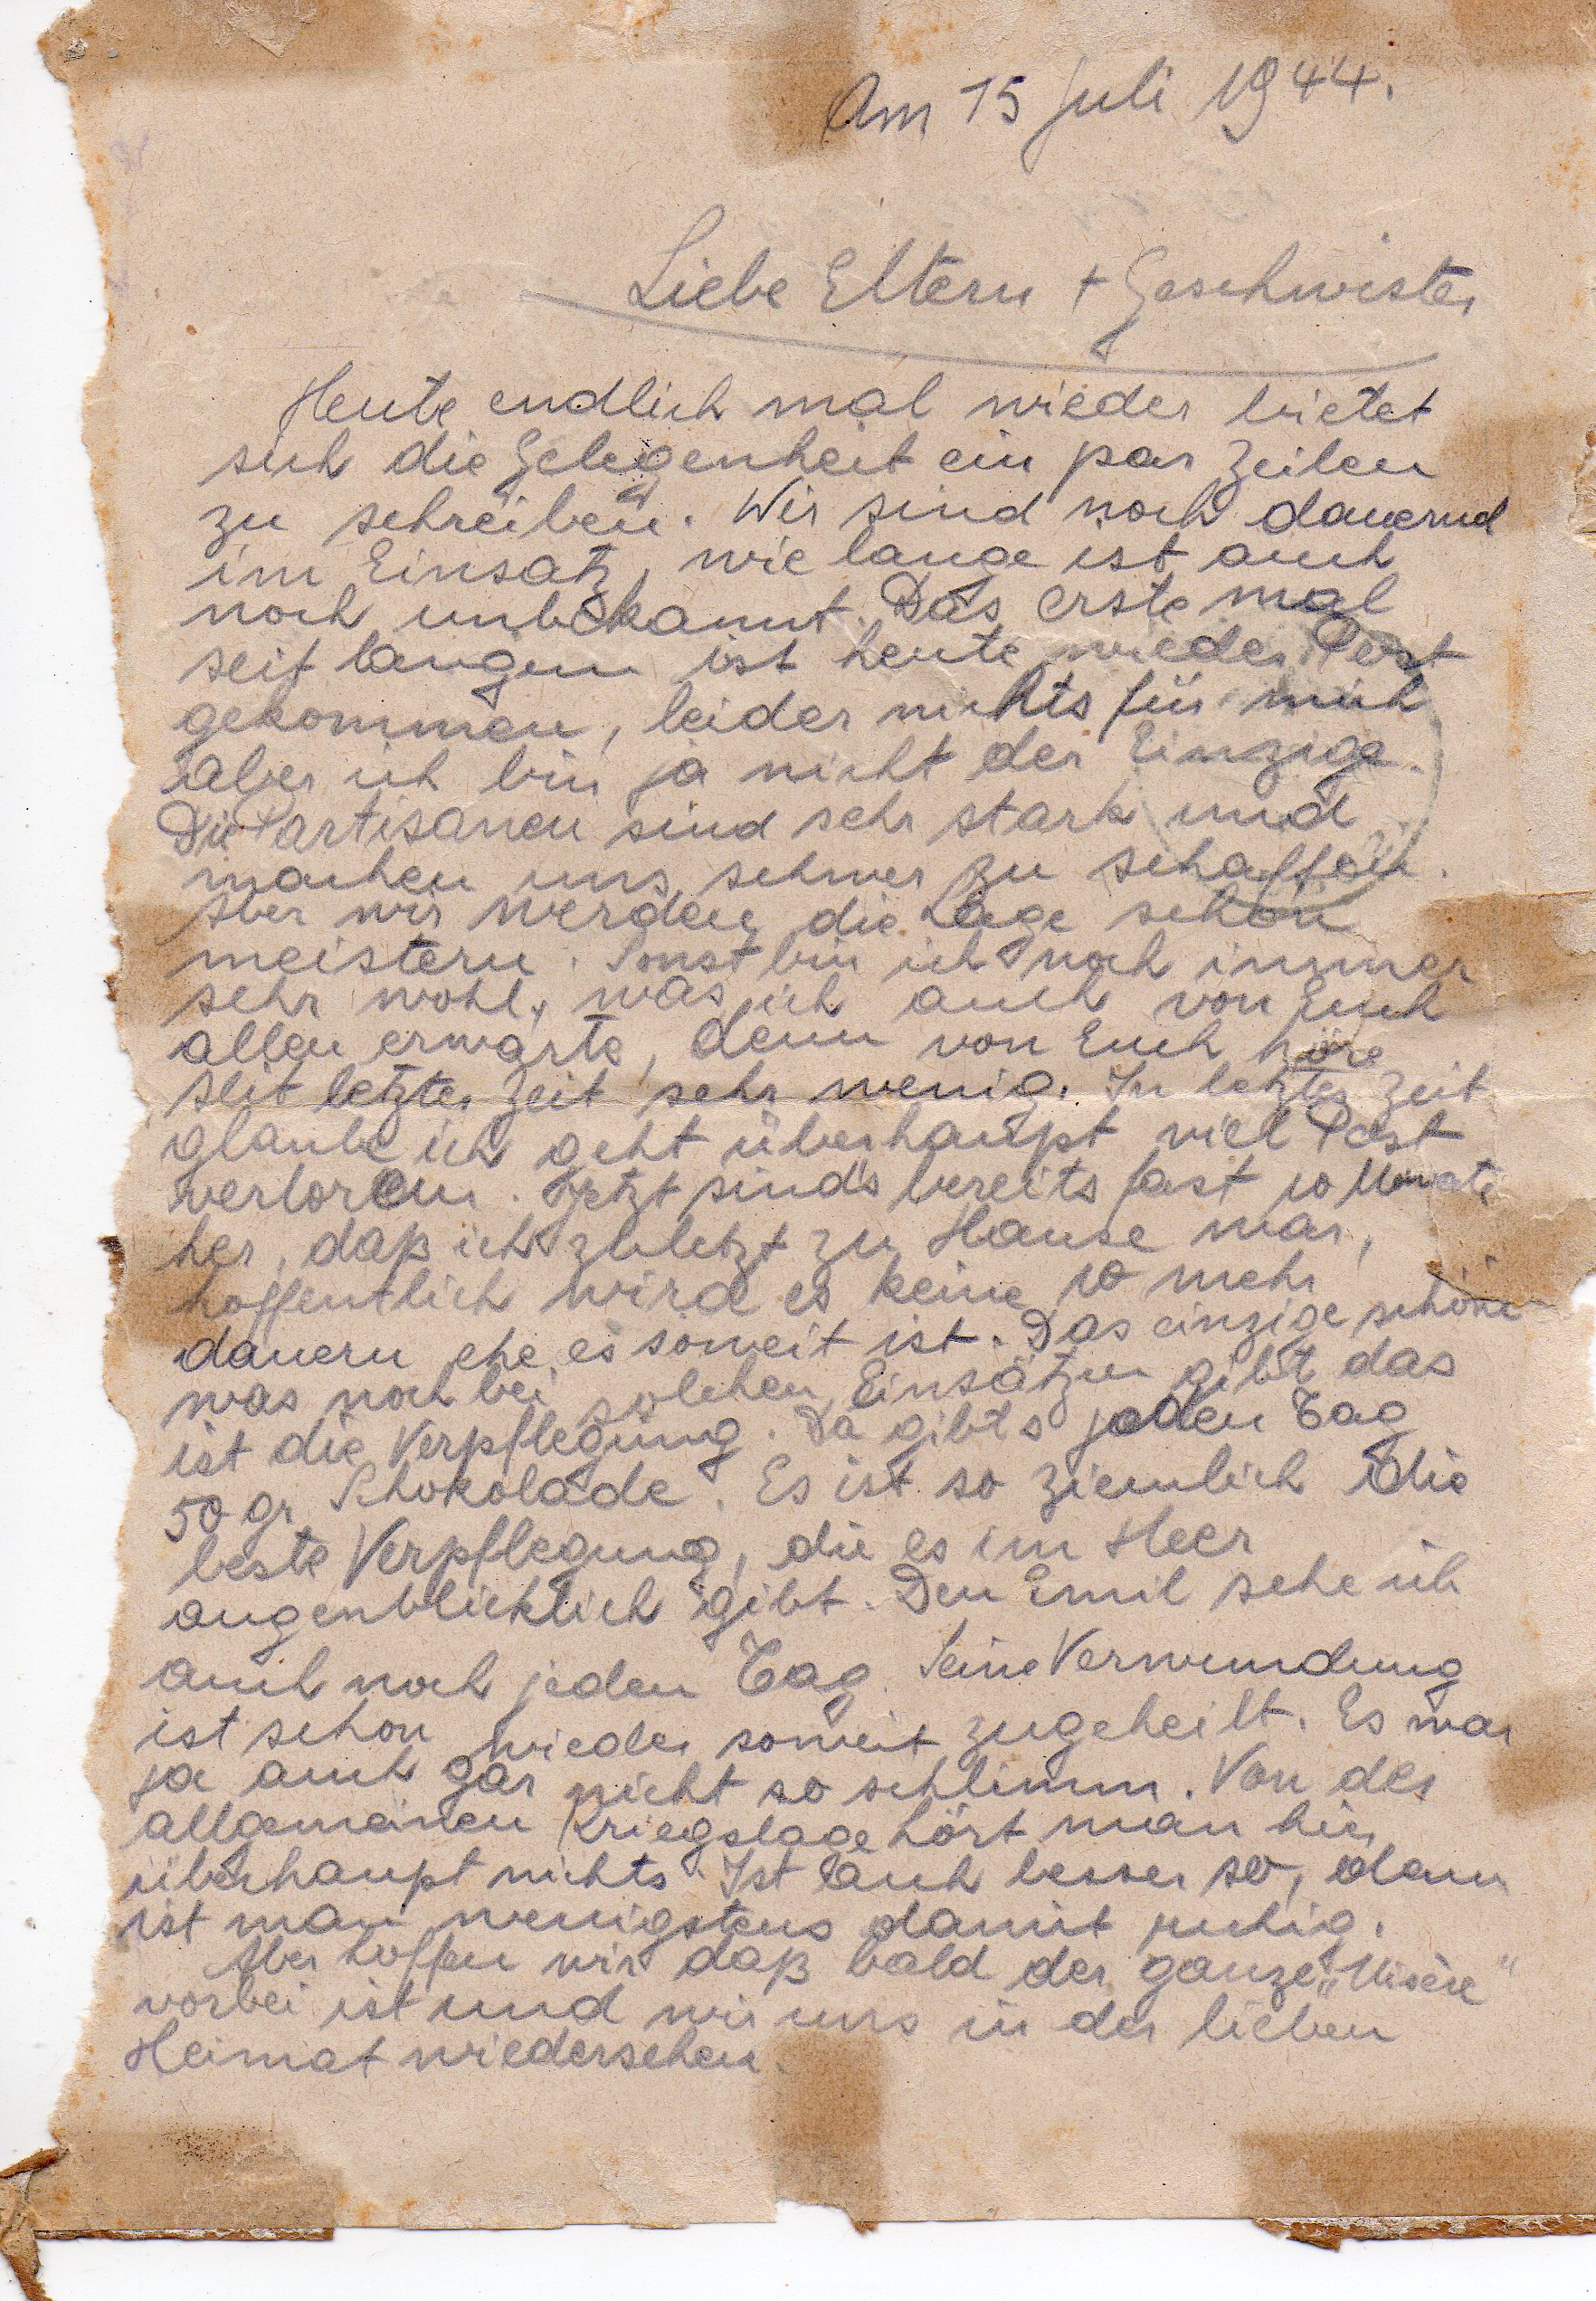 Am 15 Juli 1944.
Liebe Eltern + Geschwister
Heute endlich mal wieder bietet
sich die Gelegenheit ein par Zeilen
zu schreiben. Wir sind noch dauernd
im Einsatz, wie lange ist auch
noch unbekannt. Das erste mal
seit langem ist heute wieder Post
gekommen, leider nichts für mich
aber ich bin ja nicht der Einzige.
Die Partisanen sind sehr stark und
machen uns schwer zu schaffen.
Aber wir werden die Lage schon
meistern. Sonst bin ich noch immer
sehr wohl, was ich auch von Euch
allen erwarte, denn von Euch höre
seit letzter Zeit sehr wenig. In letzter Zeit
glaube ich geht überhaupt viel Post
verloren. Jetzt sind's bereits fast 10 Monate
her, daß ich zuletzt zu Hause war,
hoffentlich wird es keine 10 mehr
dauern ehe es soweit ist. Das einzige schöne
was noch bei solchen Einsätzen gibt das
ist die Verpflegung. Da gibts jeden Tag
50 gr Schokolade. Es ist so ziemlich die
beste Verpflegung, die es im Heer
augenblicklich gibt. Den Emil sehe ich
auch noch jeden Tag. Seine Verwundung
ist schon wieder soweit zugeheilt. Es war
ja auch gar nicht so schlimm. Von der
allgemeinen Kriegslage hört man hier
überhaupt nichts. Ist auch besser so, dann
ist man wenigstens damit ruhig.
Aber hoffen wir daß bald der ganze „Misère"
vorbei ist und wir uns in der lieben
Heimat wiedersehen.